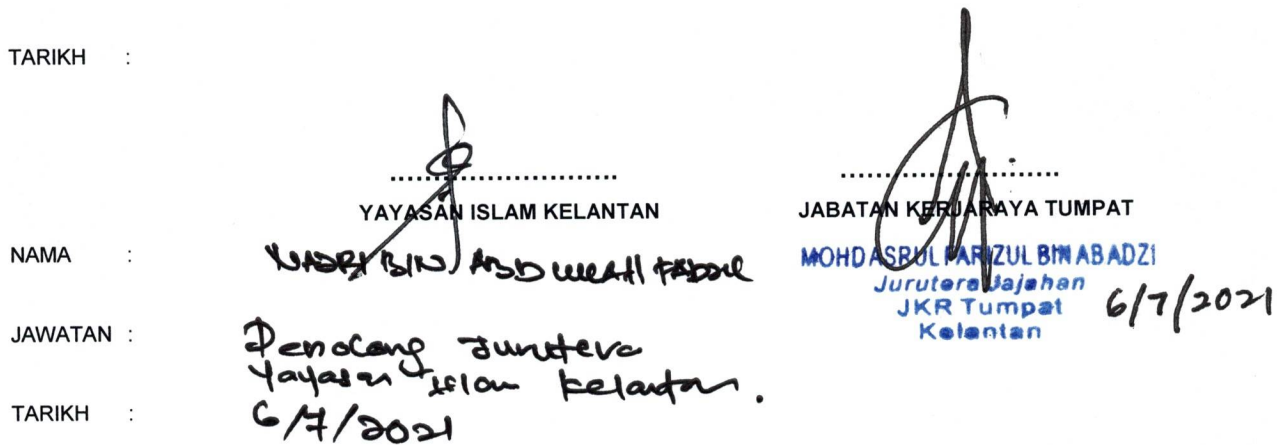 TARIKH :
YAYASAN ISLAM KELANTAN
JABATAN KERJARAYA TUMPAT
NAMA : BIN
MOHD ASRUL FARIZUL BIN ABADZI
Jurutera Jajahan
JKR Tumpat
Kelantan
6/7/2021
JAWATAN : Penolong Jurutera
Yayasan Islam Kelantan.
TARIKH : 6/7/2021